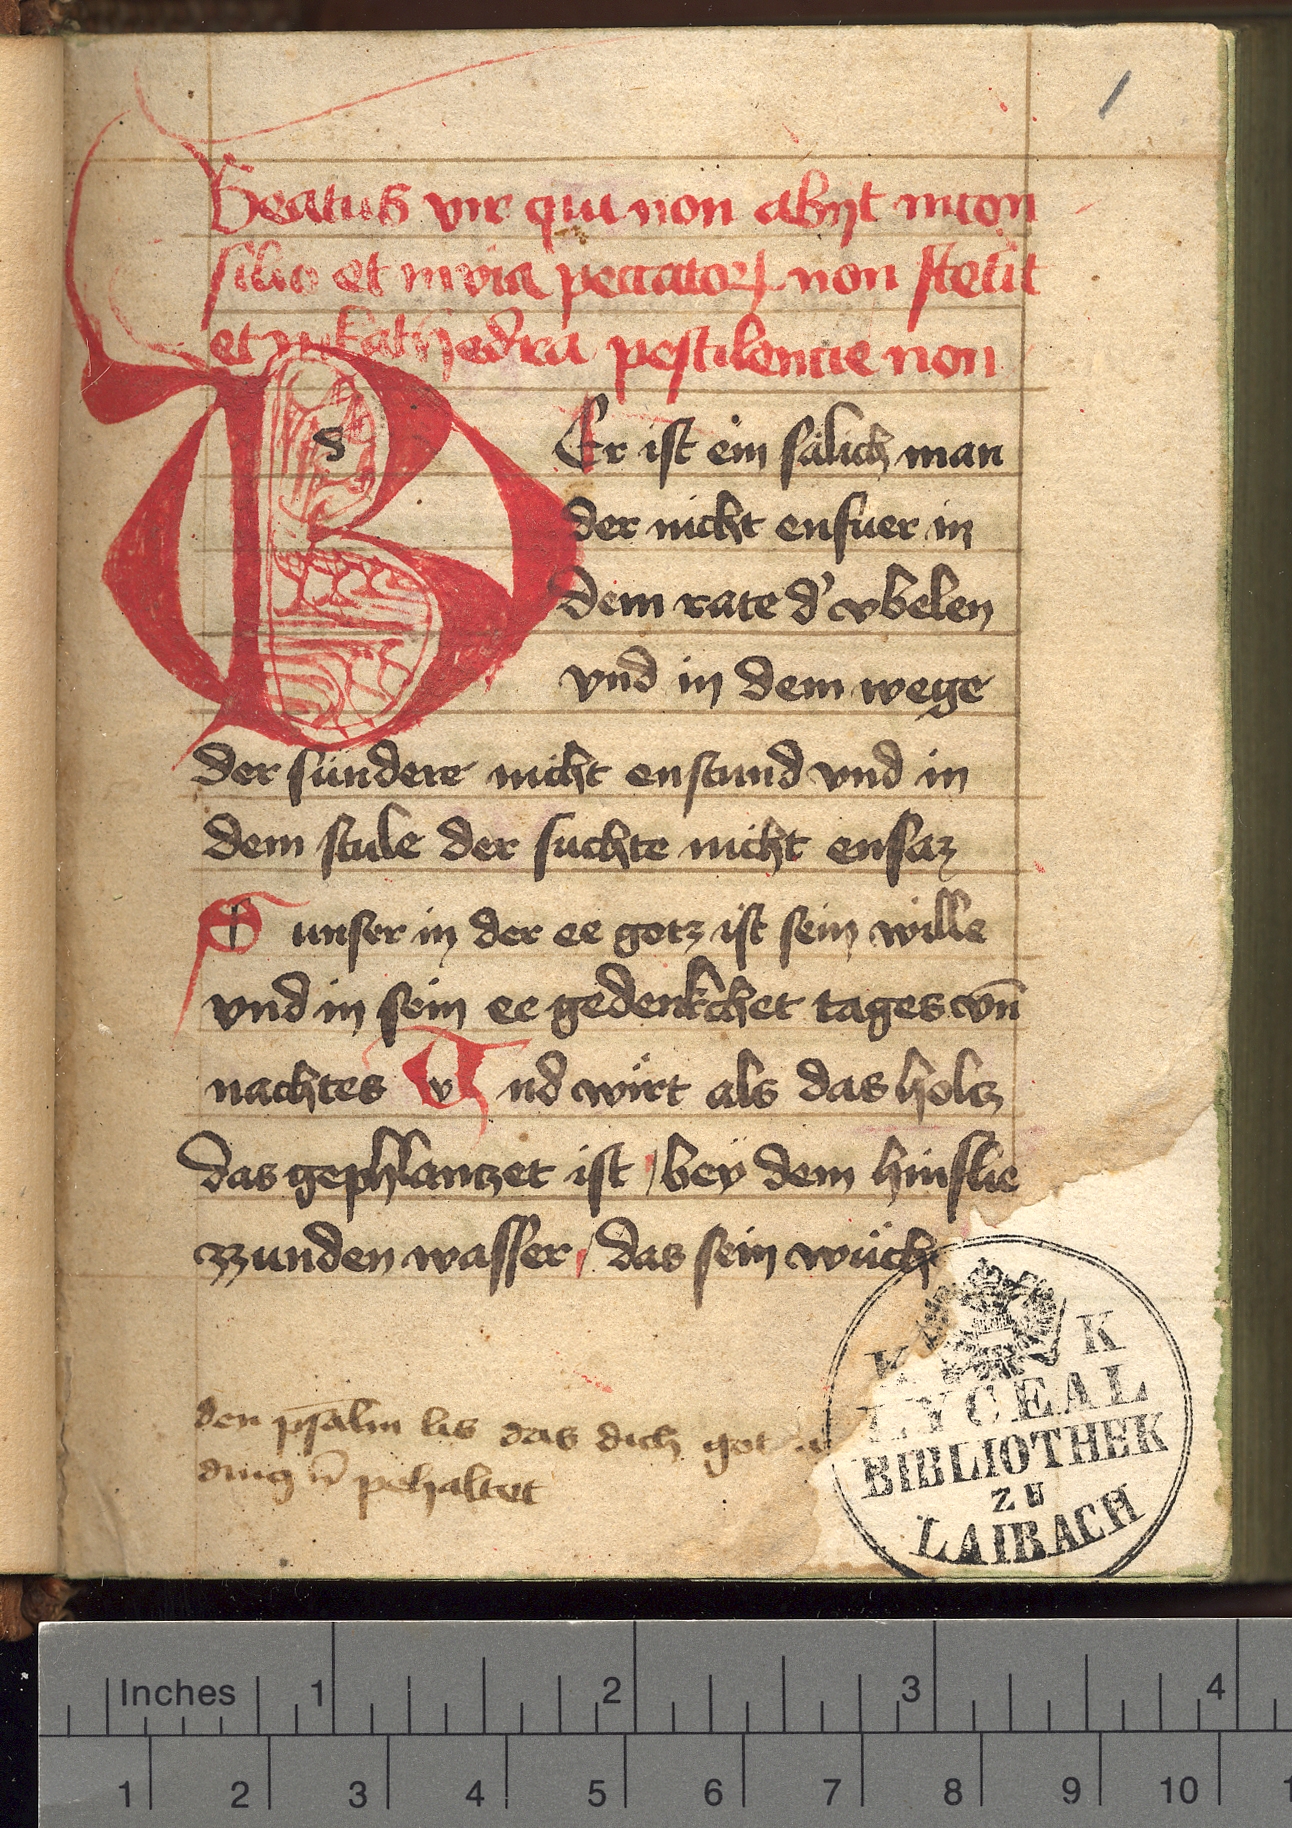 1
Beatus vir qui non abijt incon
silio et in via peccator� non stetit
et in kathedra pestilencie non
B d Er ist ein sälich man
der nicht enfuer in
dem rate d' vbelen
vnd in dem wege
der sündere nicht enstund vnd in
dem stule der suchte nicht ensaz
S unser in der ee gotz ist sein wille
vnd in sein ee gedenkchet tages vn̄
nachtes V nd wirt als das holcz
das gephlanczet ist / bey dem hinflie
zzunden wasser / das sein wüch
den psalm lis das dich got
ding vn̄ pehaltet
K K
LYCEAL
BIBLIOTHEK
ZU
LAIBACH
Inches 1 2 3 4
1 2 3 4 5 6 7 8 9 10 1